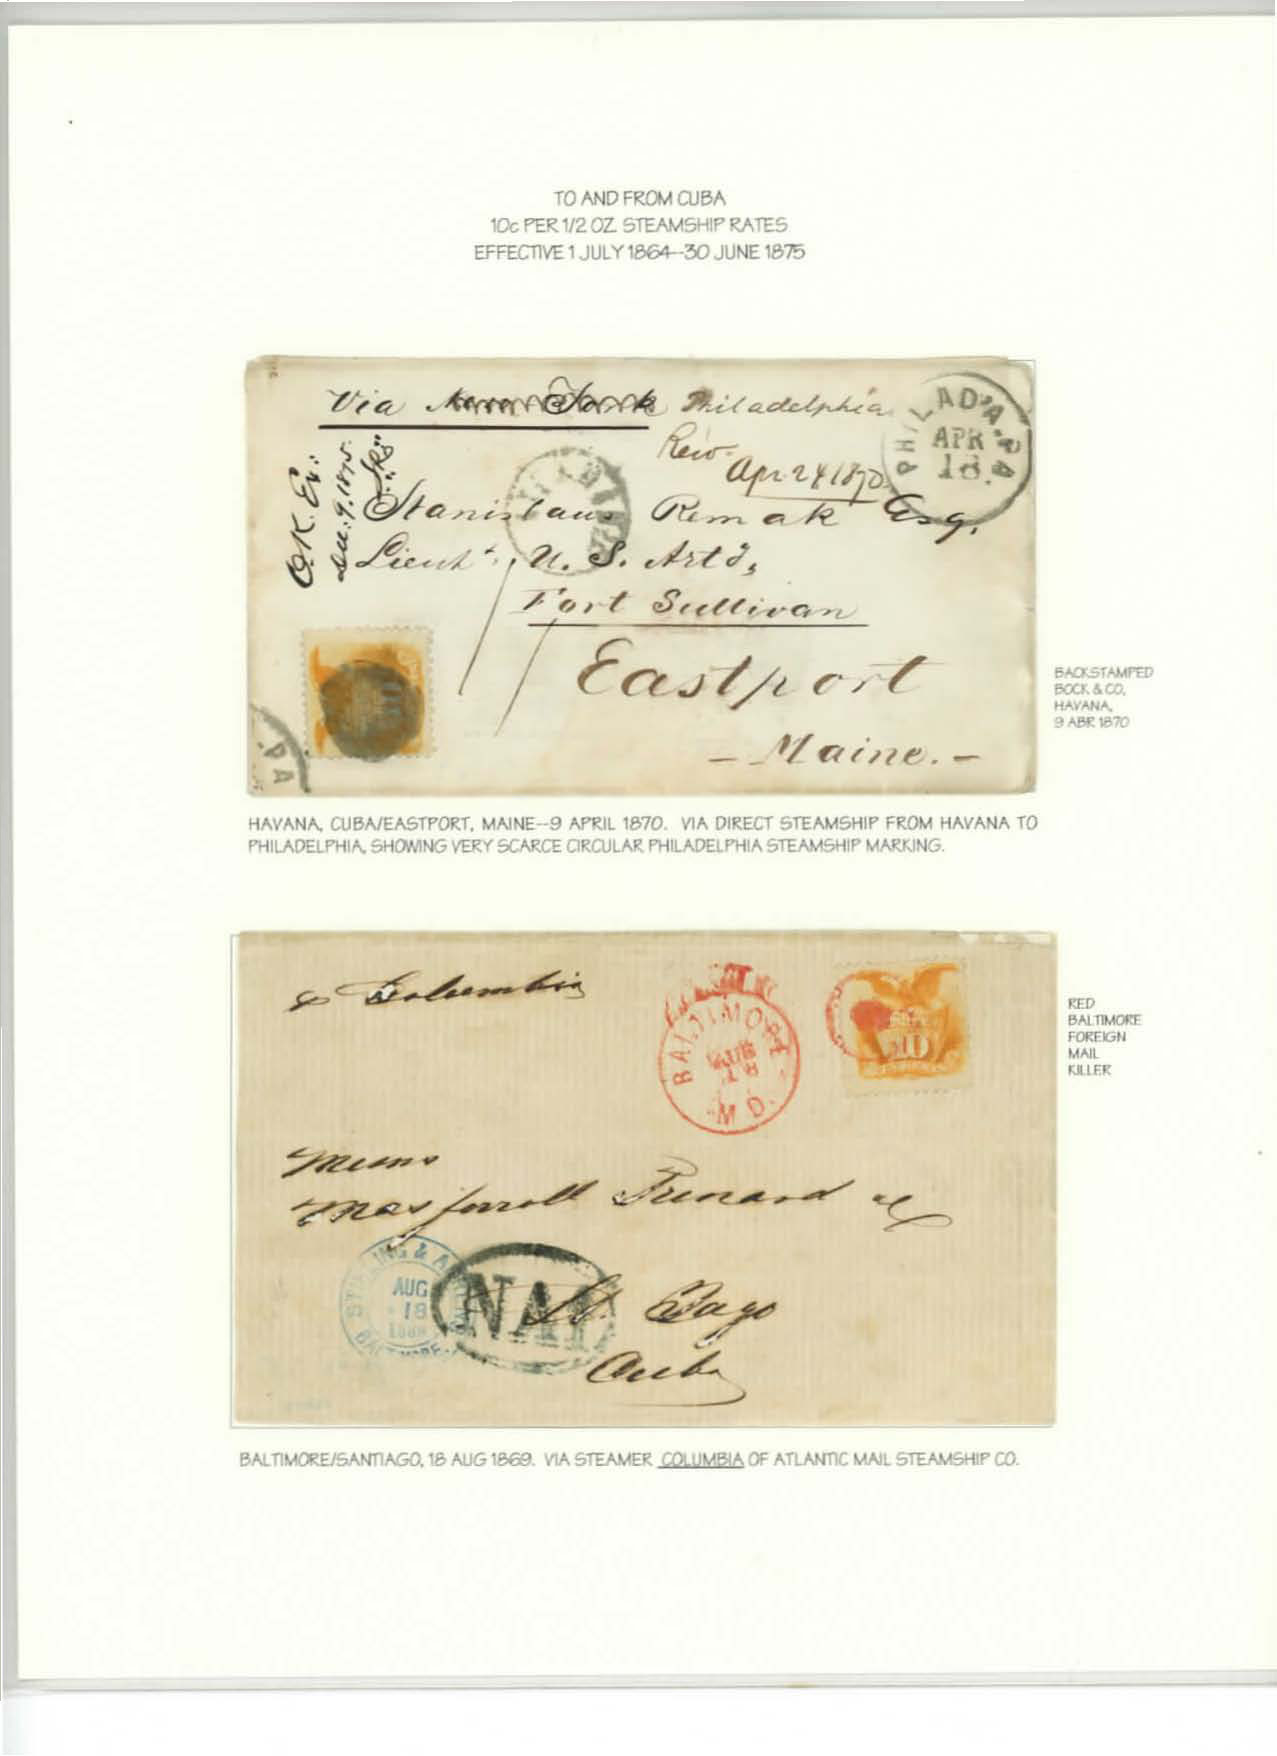 TO AND FROM CUBA
10c PER 1/2 OZ. STEAMSHIP RATES
EFFECTIVE 1 JULY 1864--30 JUNE 1875
Via New York Philadelphia
PHILAD'A. PA
APR
18.
Recd.
Apr 24 1870.
O.K. Ev:
Dec: 9. 1875.
Stanislaus Remak Esq.
Lieut., U. S. Art'y,
Fort Sullivan
Eastport
- Maine. -
PA
BACKSTAMPED
BOCK & CO,
HAVANA,
9 ABR 1870
HAVANA, CUBA/EASTPORT, MAINE--9 APRIL 1870. VIA DIRECT STEAMSHIP FROM HAVANA TO
PHILADELPHIA, SHOWING VERY SCARCE CIRCULAR PHILADELPHIA STEAMSHIP MARKING.
Columbia
BALTIMORE
AUG
18
MD.
10
RED
BALTIMORE
FOREIGN
MAIL
KILLER
Messrs
AUG
18
1869
BALTIMORE
NA1
St. Jago
Cuba
BALTIMORE/SANTIAGO, 18 AUG 1869. VIA STEAMER COLUMBIA OF ATLANTIC MAIL STEAMSHIP CO.